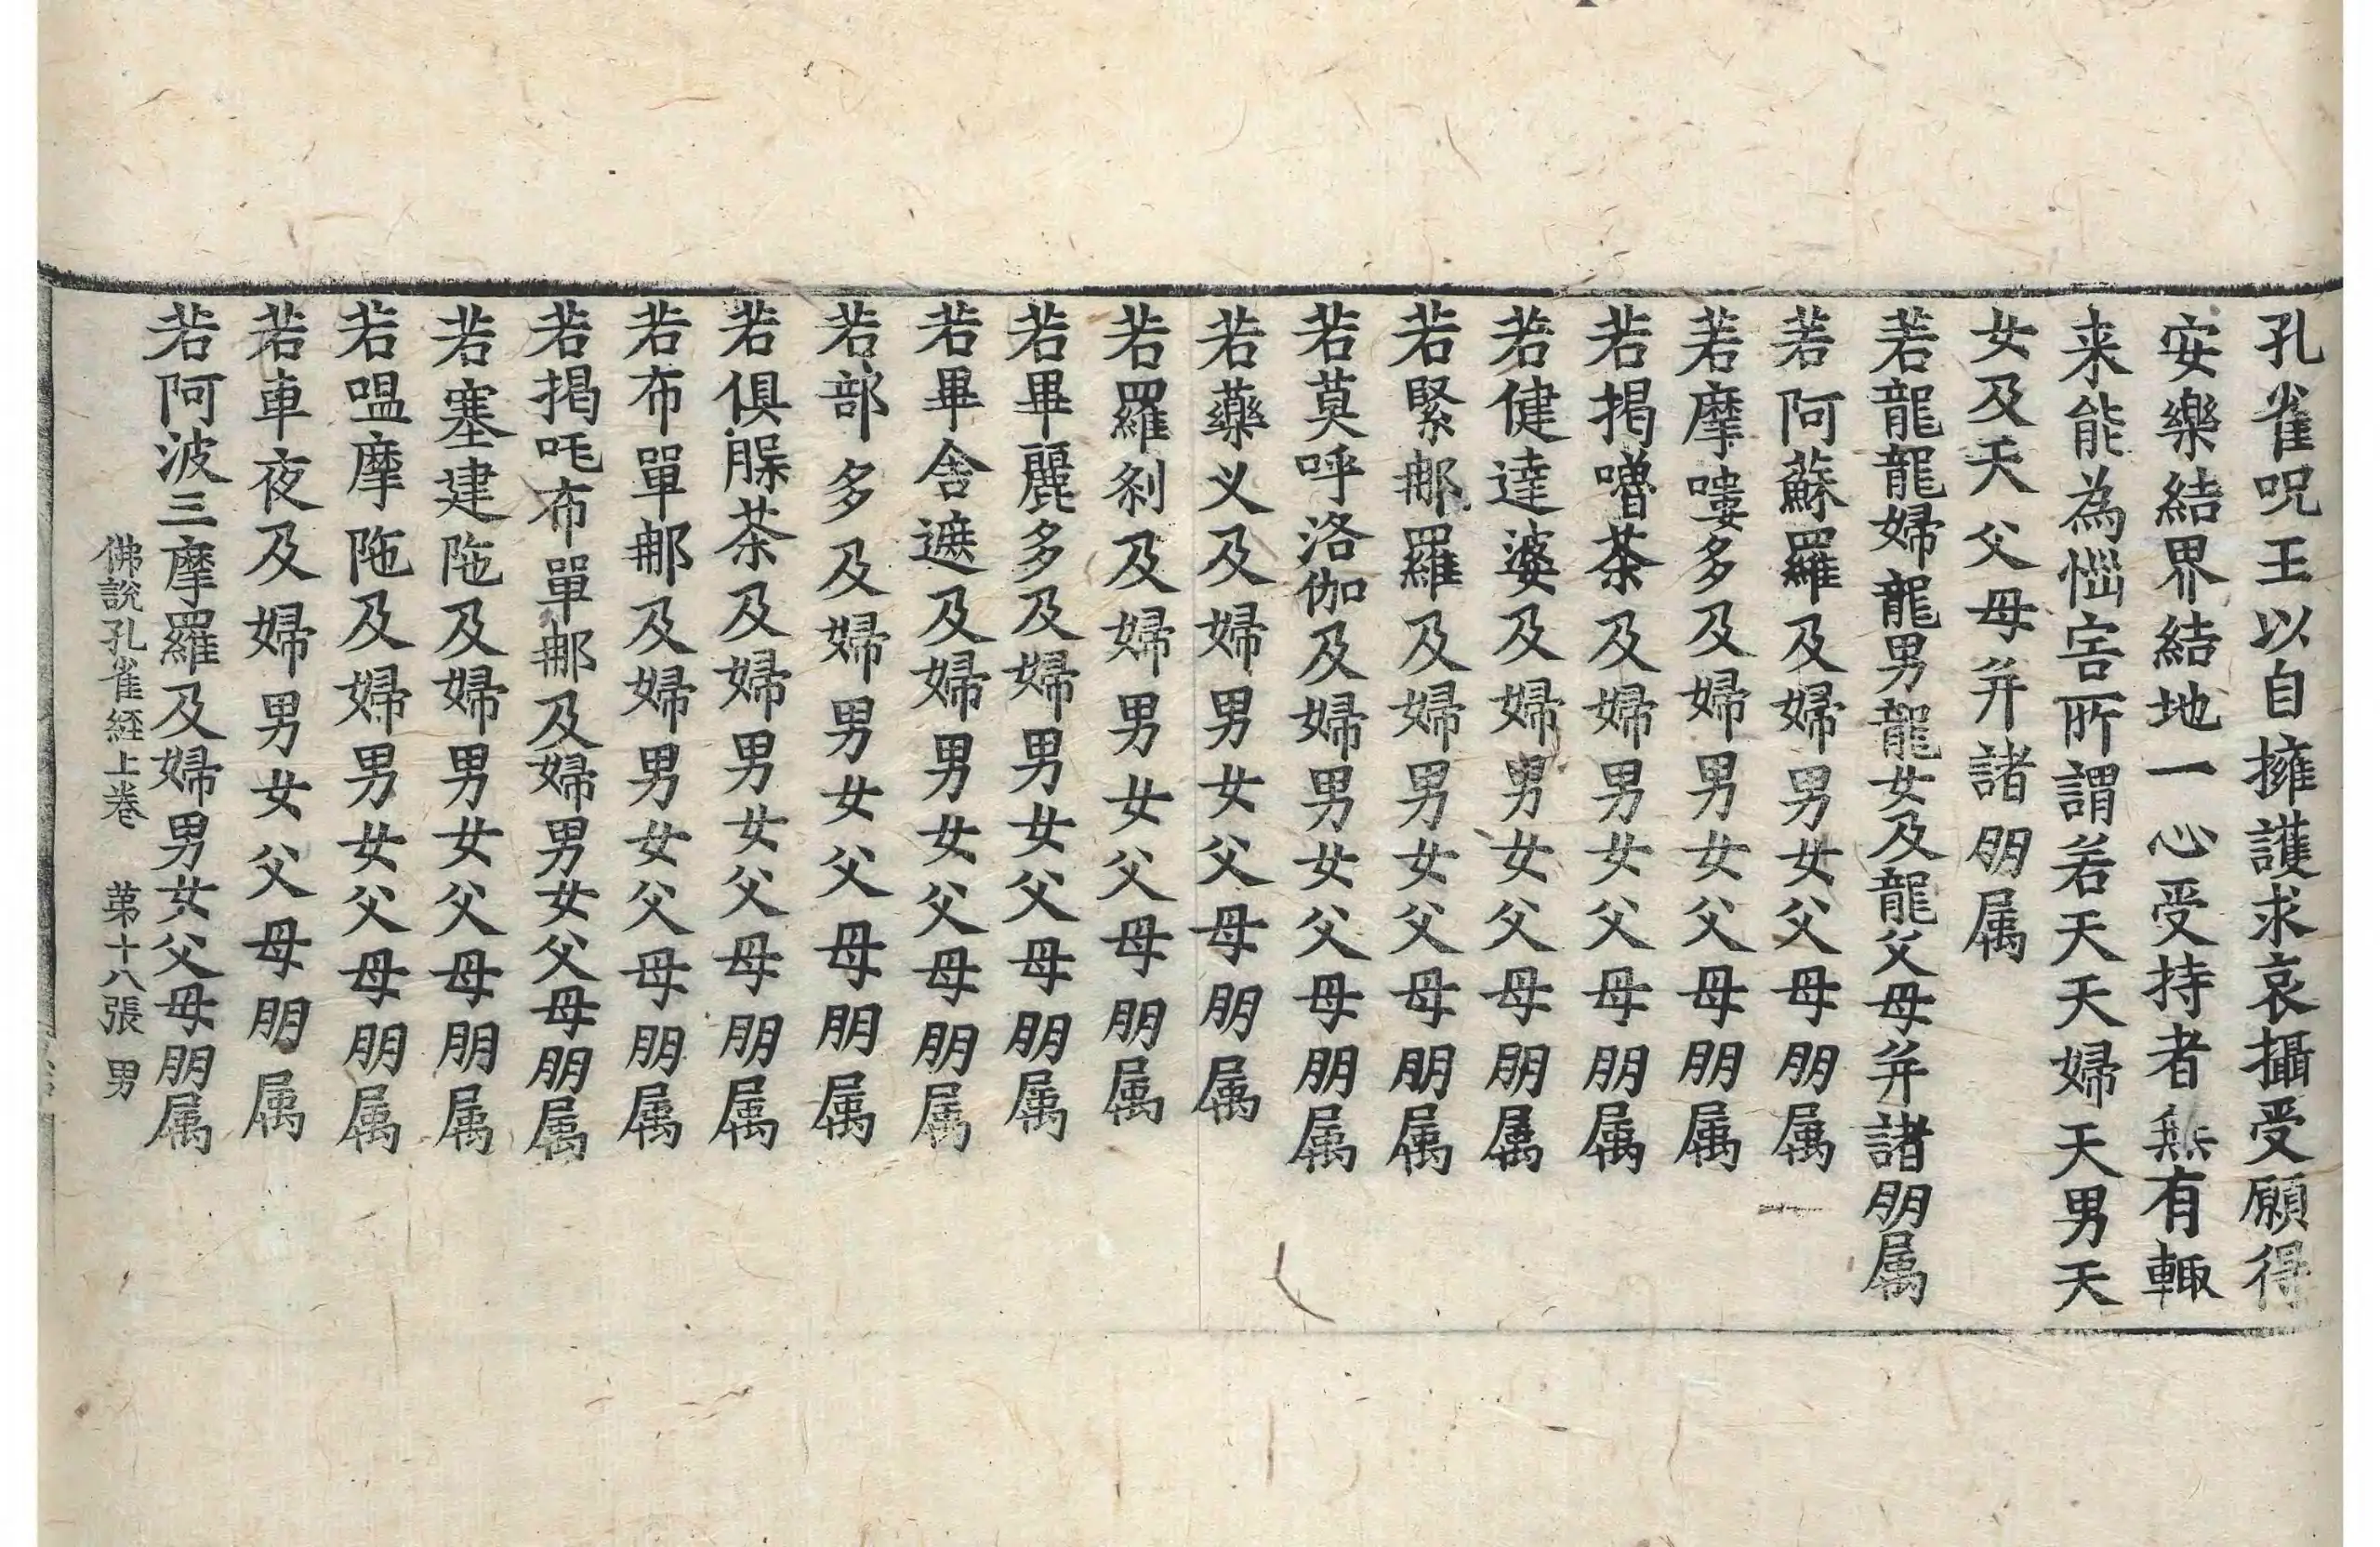 孔雀呪王以自擁護求哀攝受願得
安樂結界結地一心受持者無有輙
来能為惱害所謂若天天婦天男天
女及天父母并諸朋属
若龍龍婦龍男龍女及龍父母并諸朋属
若阿蘇羅及婦男女父母朋属
若摩嘍多及婦男女父母朋属
若揭嚕茶及婦男女父母朋属
若健達婆及婦男女父母朋属
若緊那羅及婦男女父母朋属
若莫呼洛伽及婦男女父母朋属
若藥义及婦男女父母朋属
若羅剎及婦男女父母朋属
若畢麗多及婦男女父母朋属
若畢舎遮及婦男女父母朋属
若部多及婦男女父母朋属
若俱腬茶及婦男女父母朋属
若布單那及婦男女父母朋属
若揭吒布單那及婦男女父母朋属
若塞建陁及婦男女父母朋属
若嗢摩陁及婦男女父母朋属
若車夜及婦男女父母朋属
若阿波三摩羅及婦男女父母朋属
佛說孔雀経上卷 苐十八張 男